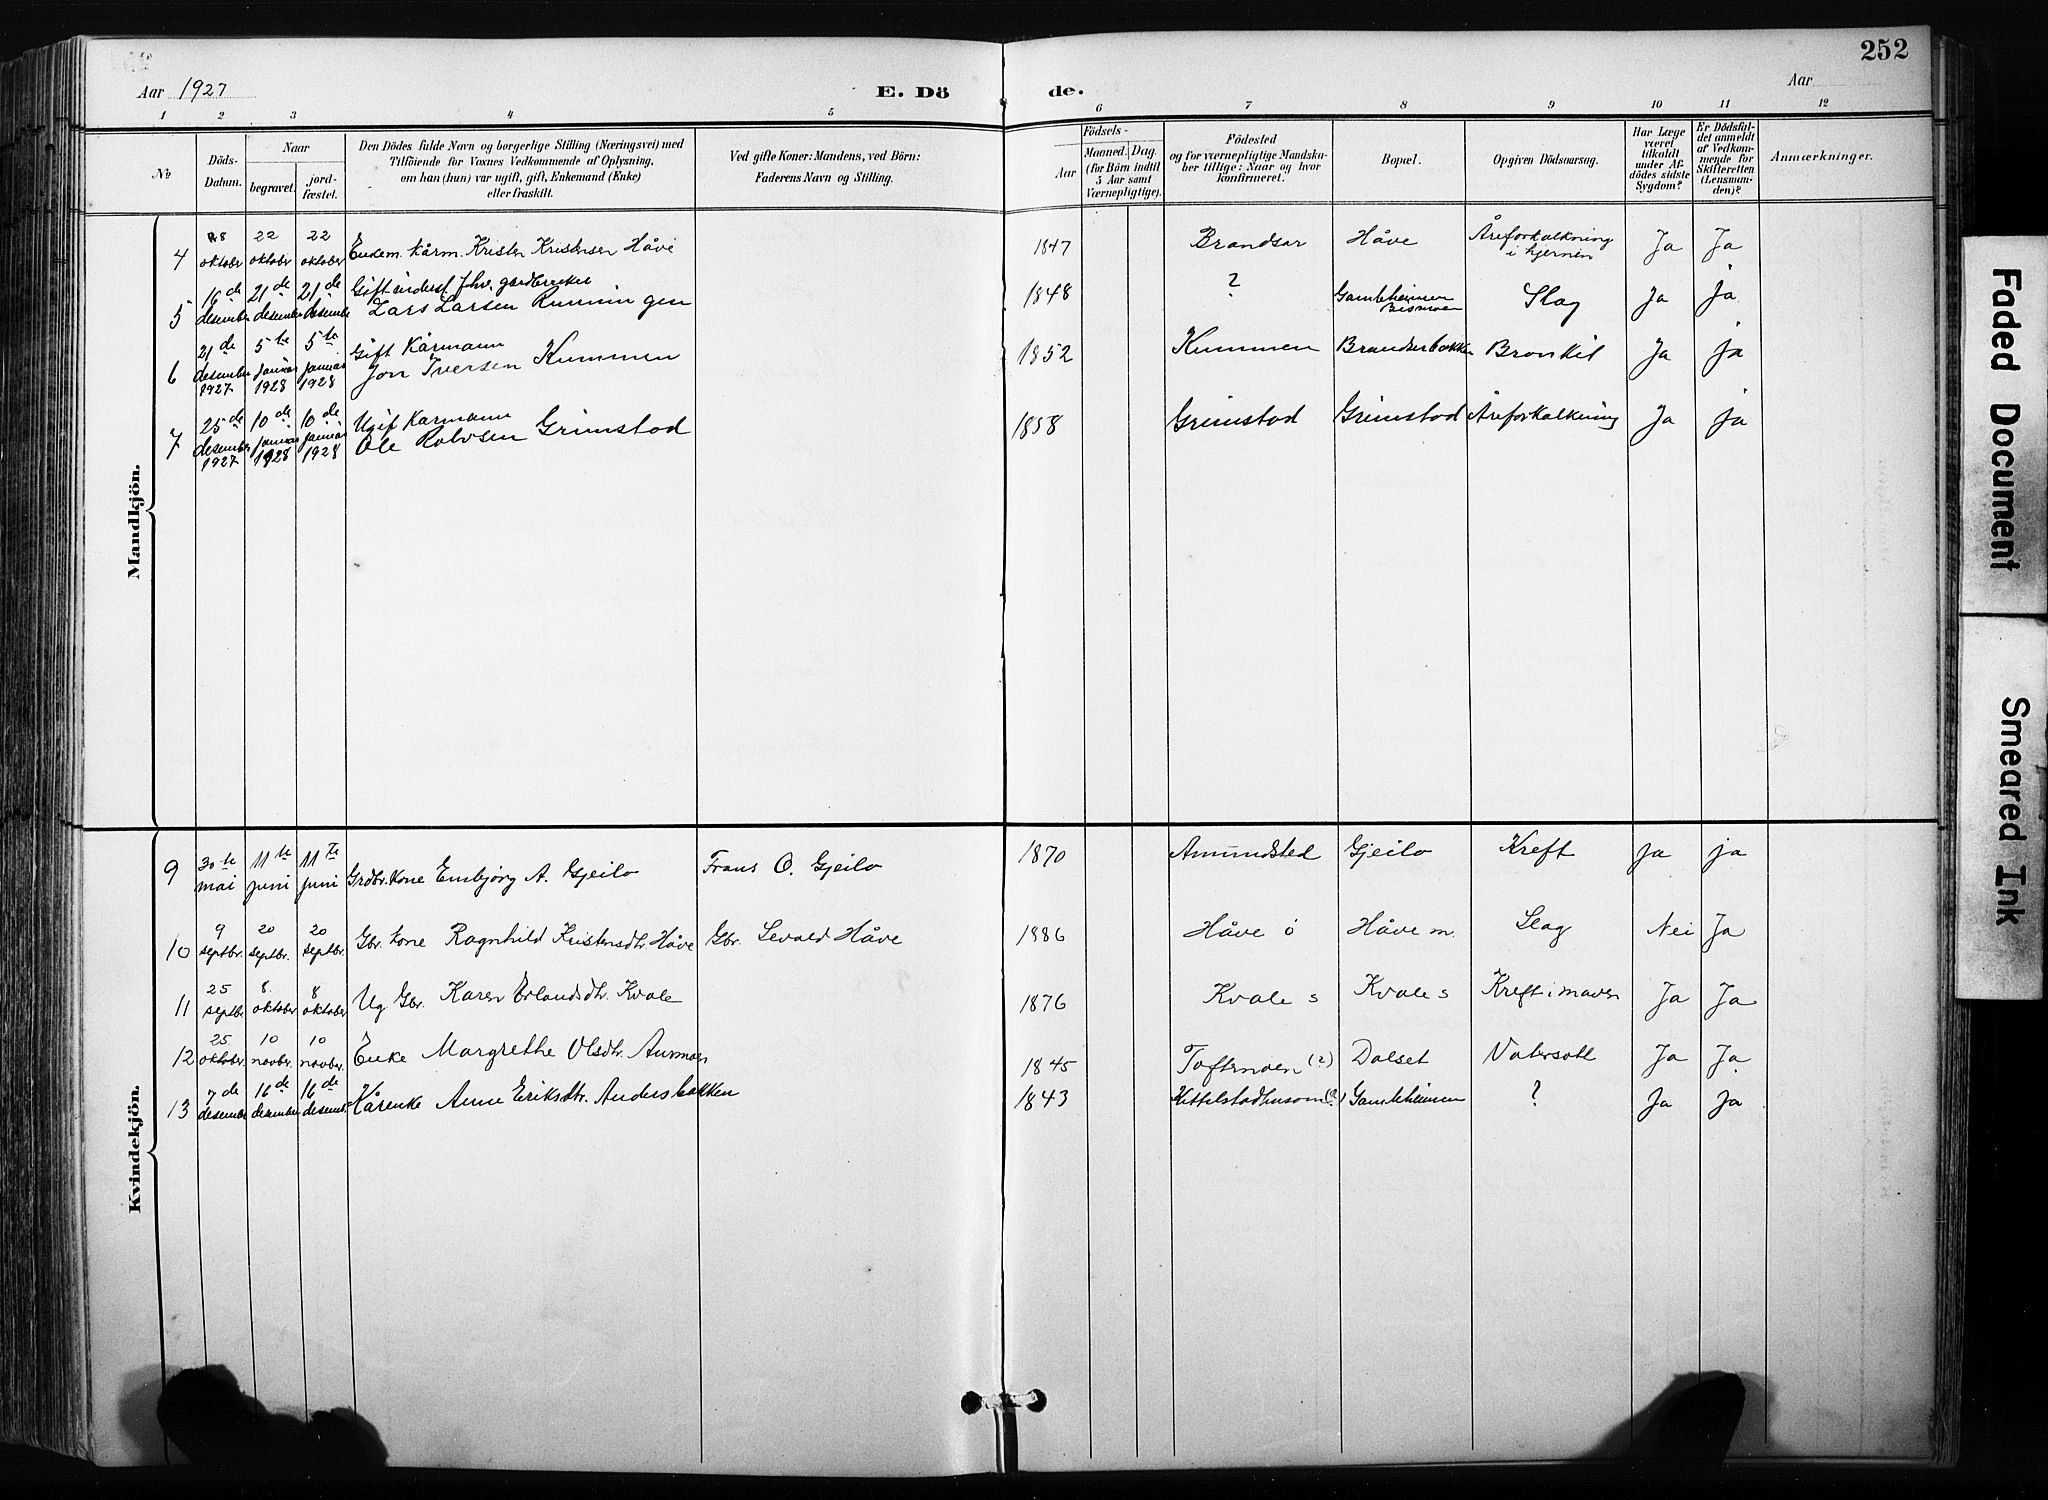 252
Aar 1927
E. Dö de.
Aar
1 2 3 4 5 6 7 8 9 10 11 12
№
Döds-Datum.
Naar
begravet.
jord-fæstet.
Den Dödes fulde Navn og borgerlige Stilling (Næringsvei) med
Tilföiende for Voxnes Vedkommende af Oplysning,
om han (hun) var ugift, gift, Enkemand (Enke)
eller fraskilt.
Ved gifte Koner: Mandens, ved Börn:
Faderens Navn og Stilling.
Födsels-
Aar
Maaned. Dag.
(for Börn indtil
5 Aar samt
Værnepligtige).
Födested
og for værnepligtige Mandska-
ber tillige: Naar og hvor
konfirmeret.
Bopæl.
Opgiven Dödsaarsag.
Har Læge
været
tilkaldt
under Af-
dödes sidste
Sygdom?
Er Dödsfal-
det anmeldt
af Vedkom-
mende for
Skifteretten
(Lensman-
den)?
Anmærkninger.
Mandkjön.
4 18 oktober 22 oktober 22 oktober Enkem. kårm. Kristen Kristensen Håve 1847 Brandsar Håve Åreforkalkning i hjernen Ja Ja
5 16de desember 21de desember 21de desember Gift inderst fhv. gardbruker Lars Larsen Runningen 1848 ? Gamleheimen Bismoen Slag Ja ja
6 21de desember 1927 5te januar 1928 5te januar 1928 Gift Kårmann Jon Iversen Kummen 1852 Kummen Brandserbakken Bronkit Ja ja
7 25de desember 1927 10de januar 1928 10de januar 1928 Ugif Kårmann Ole Rolvsen Grimstad 1858 Grimstad Grimstad Åreforkalkning Ja ja
Kvindekjön.
9 30te mai 11te juni 11te juni Grdbr. kone Embjørg A. Gjeilo Frans O. Gjeilo 1870 Amundsted Gjeilo Kreft Ja ja
10 9 septbr. 20 septbr. 20 septbr. Gbr. kone Ragnhild Kristensdtr. Håve Gbr. Sevald Håve 1886 Håve ö Håve m. Slag Nei Ja
11 25 septbr 8 oktober 8 oktober Ug Gbr. Karen Erlandsdtr. Kvale 1876 Kvale s Kvale s Kreft i maven Ja Ja
12 25 oktober 10 novbr. 10 novbr. Enke Margrethe Olsdtr. Aurmoen 1845 Toftemoen (?) Dalset Vatersott Ja Ja
13 7de desember 16de desember 16de desemb. Kårenke Anne Eriksdtr. Andersbakken 1843 Kittelstadhusom (?) Gamleheimen ? Ja Ja
Faded Document
Smeared Ink